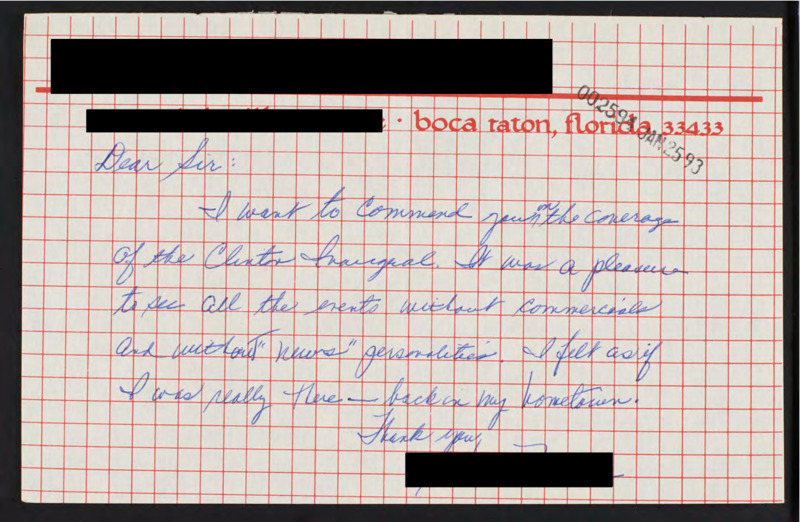 · boca raton, florida 33433
002594 JAN 25 93
Dear Sir:
I want to commend you on the coverage
of the Clinton Inaugural. It was a pleasure
to see all the events without commercials
and without "news" personalities. I felt as if
I was really there — back in my hometown.
Thank you,